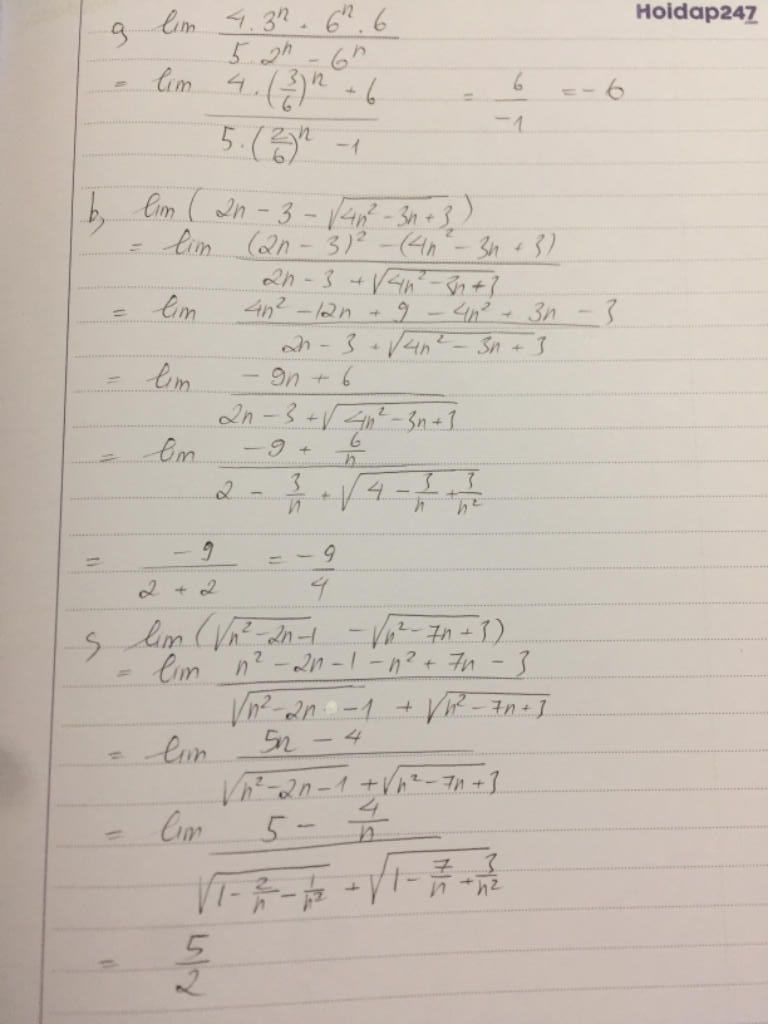 Hoidap247
a, lim (4.3ⁿ + 6ⁿ.6)/(5.2ⁿ - 6ⁿ)
= lim (4.(3/6)ⁿ + 6)/(5.(2/6)ⁿ - 1) = 6/-1 = -6
b, lim(2n - 3 - √(4n² - 3n + 3))
= lim ((2n - 3)² - (4n² - 3n + 3))/(2n - 3 + √(4n² - 3n + 3))
= lim (4n² - 12n + 9 - 4n² + 3n - 3)/(2n - 3 + √(4n² - 3n + 3))
= lim (-9n + 6)/(2n - 3 + √(4n² - 3n + 3))
= lim (-9 + 6/n)/(2 - 3/n + √(4 - 3/n + 3/n²))
= -9/(2 + 2) = -9/4
c, lim(√(n² - 2n - 1) - √(n² - 7n + 3))
= lim (n² - 2n - 1 - n² + 7n - 3)/(√(n² - 2n - 1) + √(n² - 7n + 3))
= lim (5n - 4)/(√(n² - 2n - 1) + √(n² - 7n + 3))
= lim (5 - 4/n)/(√(1 - 2/n - 1/n²) + √(1 - 7/n + 3/n²))
= 5/2